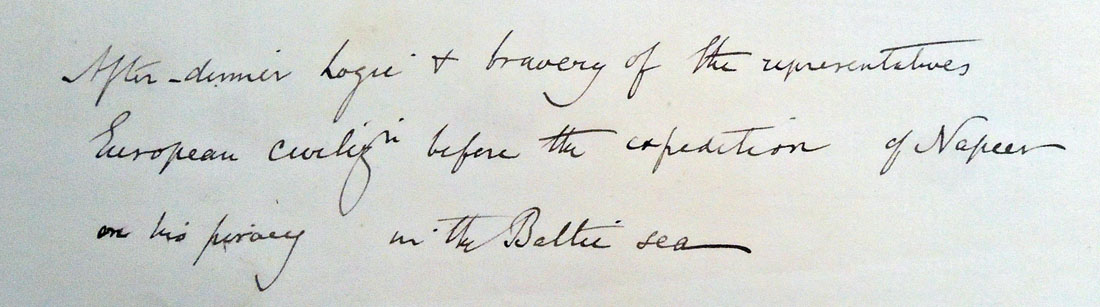 After-dinner Logic & bravery of the representatives
European civiliz'n before the expedition of Napier
on his piracy in the Baltic sea